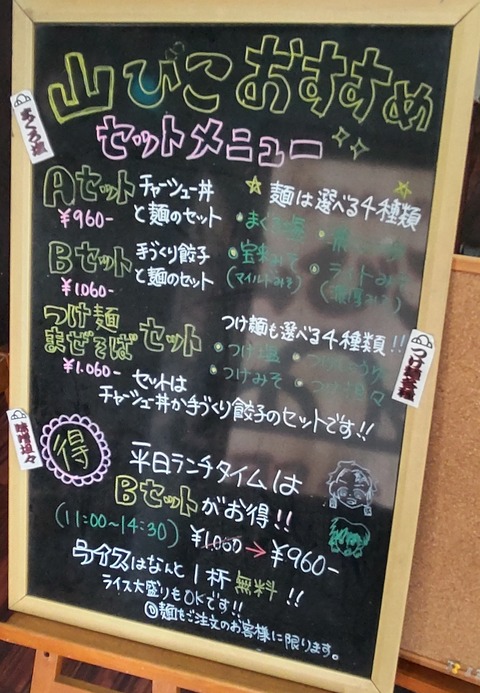 山びこおすすめ
セットメニュー
まぐろ塩
Aセット チャーシュー丼
と麺のセット
¥960-
麺は選べる4種類
・まぐろ塩
・宝来みそ
(マイルドみそ)
(濃厚みそ)
Bセット 手づくり餃子
と麺のセット
¥1.060-
つけ麺
まぜそば セット
¥1.060-
つけ麺も選べる4種類!!
・つけ塩
・つけみそ
・つけ坦々
セットは
チャーシュー丼か手づくり餃子のセットです!!
味噌坦々
得
平日ランチタイムは
Bセットがお得!!
(11:00~14:30)
¥1.060→¥960-
ライスはなんと1杯無料!!
ライス大盛りもOKです!!
◎麺をご注文のお客様に限ります。